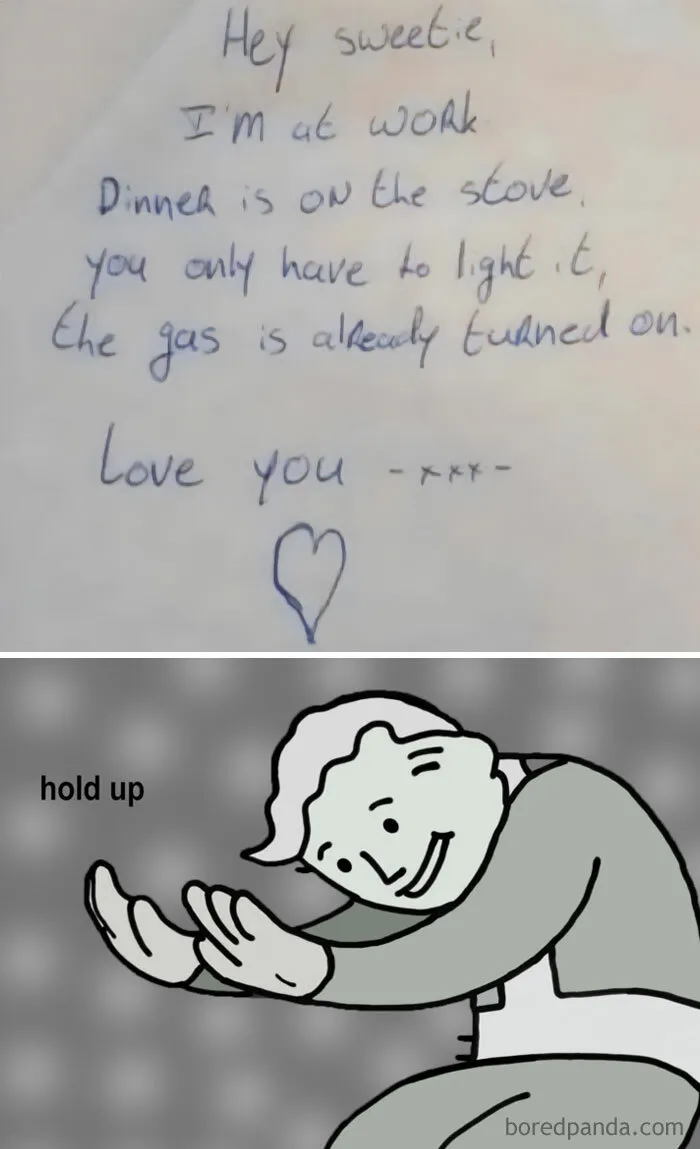 Hey sweetie,
I'm at work
Dinner is on the stove,
you only have to light it,
the gas is already turned on.
Love you -xxx-
hold up
boredpanda.com